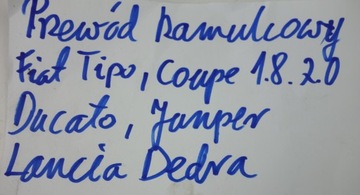 Przewód hamulcowy
Fiat Tipo, Coupe 1.8. 2.0
Ducato, Jumper
Lancia Dedra